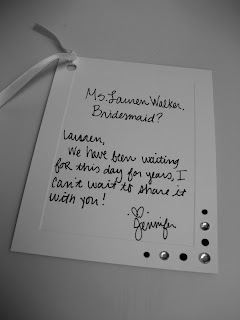 Ms. Lauren Walker,
Bridesmaid?
Lauren,
We have been waiting
for this day for years, I
can't wait to share it
with you!
Jennifer